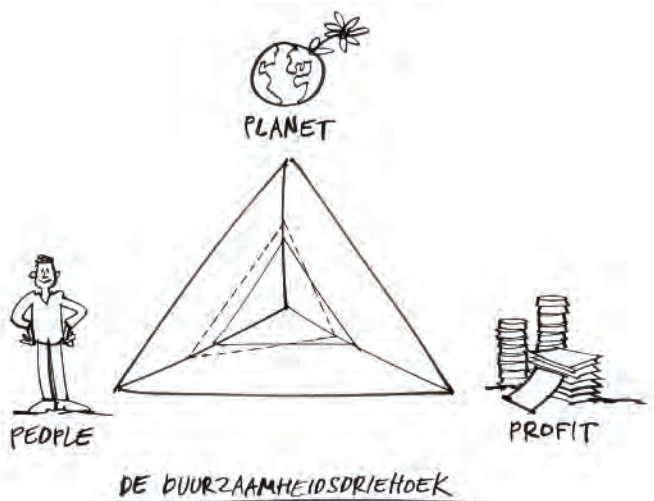 PLANET
PEOPLE
PROFIT
DE DUURZAAMHEIDSDRIEHOEK